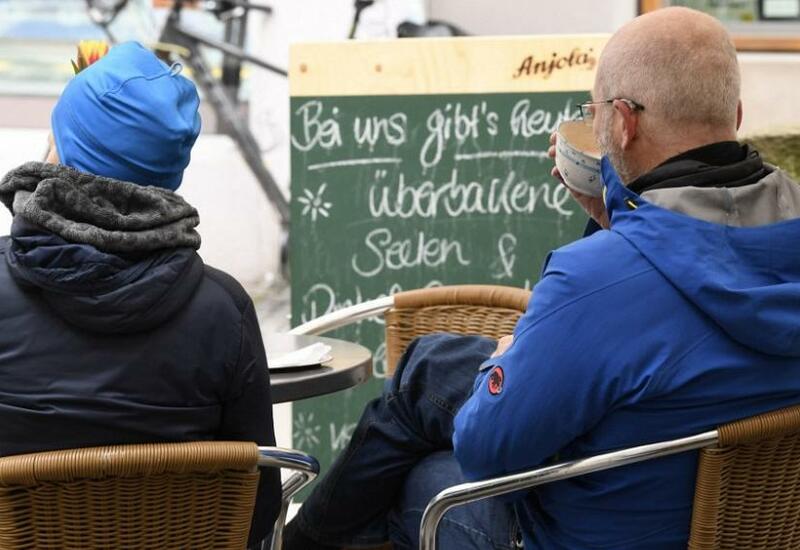 Anjola
Bei uns gibt's heut
überbackene
Seelen &